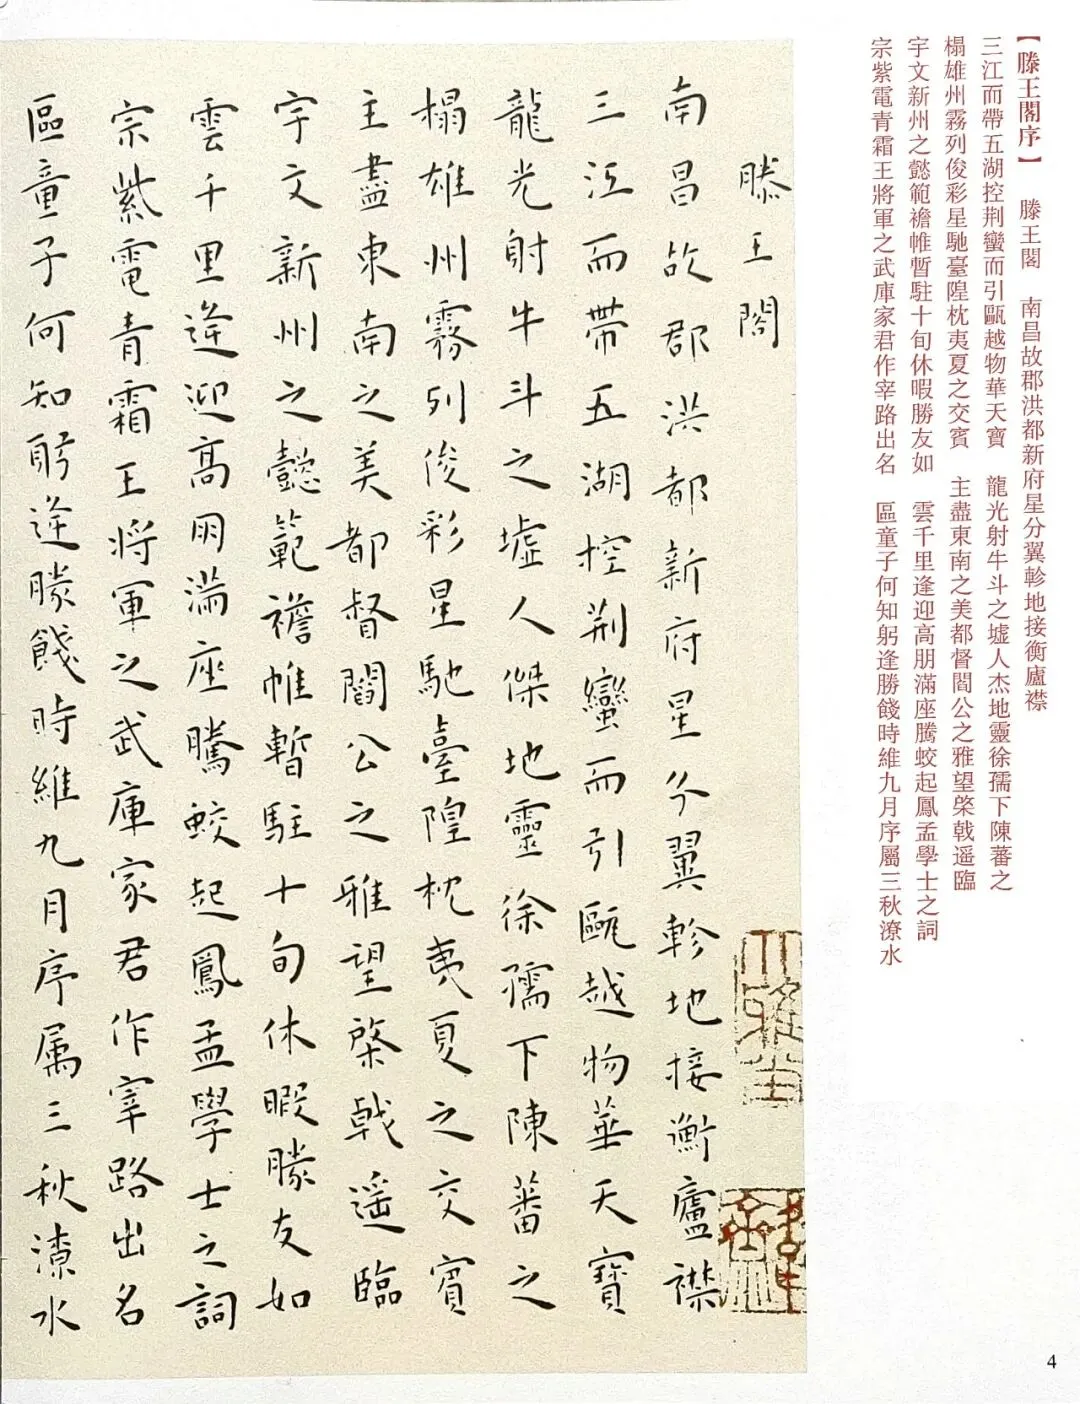 【滕王閣序】 滕王閣 南昌故郡洪都新府星分翼軫地接衡廬襟
三江而帶五湖控荆蠻而引甌越物華天寶 龍光射牛斗之墟人杰地靈徐孺下陳蕃之
榻雄州霧列俊彩星馳臺隍枕夷夏之交賓 主盡東南之美都督閻公之雅望棨戟遥臨
宇文新州之懿範襜帷暫駐十旬休暇勝友如 雲千里逢迎高朋滿座騰蛟起鳳孟學士之詞
宗紫電青霜王將軍之武庫家君作宰路出名 區童子何知躬逢勝餞時維九月序屬三秋潦水
滕王閣
南昌故郡洪都新府星分翼軫地接衡廬襟
三江而帶五湖控荆蠻而引甌越物華天寶
龍光射牛斗之墟人傑地靈徐孺下陳蕃之
榻雄州霧列俊彩星馳臺隍枕夷夏之交賓
主盡東南之美都督閻公之雅望棨戟遥臨
宇文新州之懿範襜帷暫駐十旬休暇勝友如
雲千里逢迎高朋滿座騰蛟起鳳孟學士之詞
宗紫電青霜王将軍之武庫家君作宰路出名
區童子何知躬逢勝餞時維九月序属三秋潦水
4